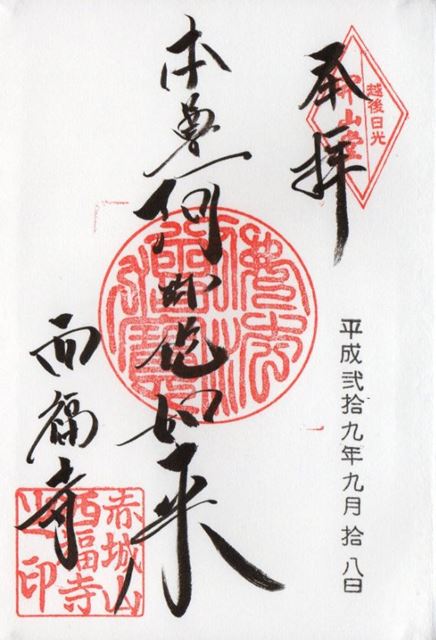 奉拝
越後日光
開山堂
平成弐拾九年九月拾八日
本尊阿弥陀如来
佛法僧寶
西福寺
赤城山
西福寺
之印